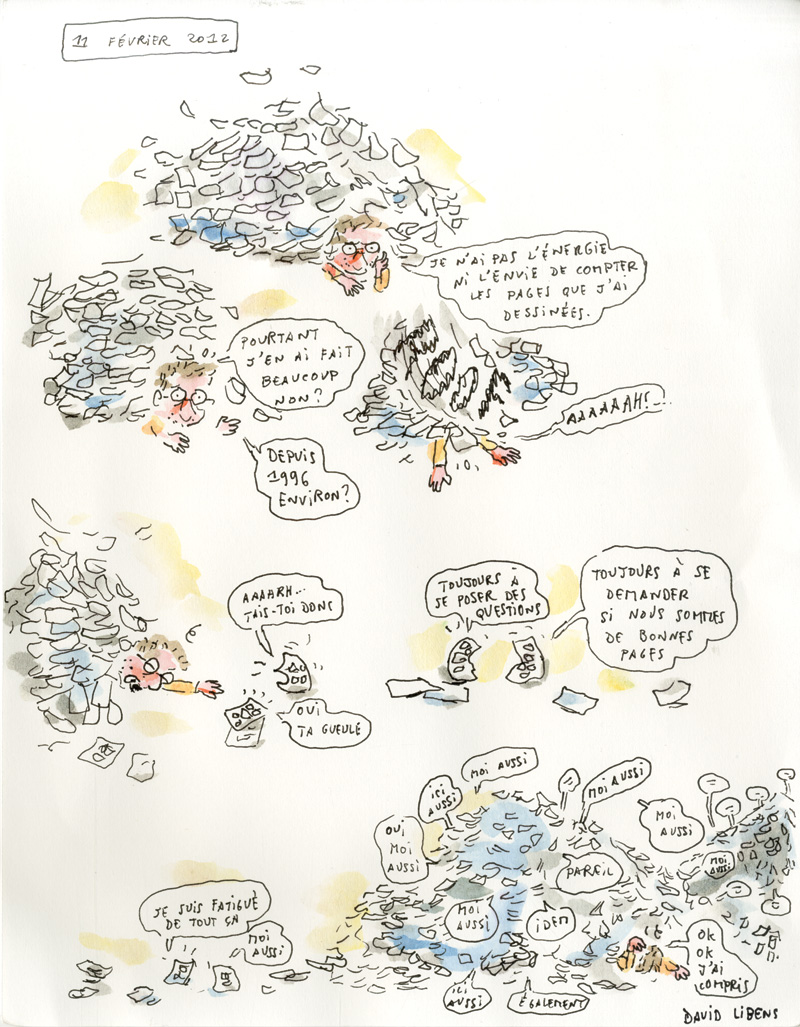 11 FÉVRIER 2012
JE N'AI PAS L'ÉNERGIE
NI L'ENVIE DE COMPTER
LES PAGES QUE J'AI
DESSINÉES.
POURTANT
J'EN AI FAIT
BEAUCOUP
NON?
DEPUIS
1996
ENVIRON?
AAAAAAH!...
AAAARH...
TAIS-TOI DONC
OUI
TA GUEULE
TOUJOURS À
SE POSER DES
QUESTIONS
TOUJOURS À SE
DEMANDER
SI NOUS SOMMES
DE BONNES
PAGES
JE SUIS FATIGUÉ
DE TOUT ÇA
MOI
AUSSI
OUI
MOI
AUSSI
ICI
AUSSI
MOI AUSSI
MOI AUSSI
MOI
AUSSI
MOI
AUSSI
PAREIL
MOI
AUSSI
IDEM
ICI
AUSSI
ÉGALEMENT
OK
OK
J'AI
COMPRIS
DAVID LIBENS